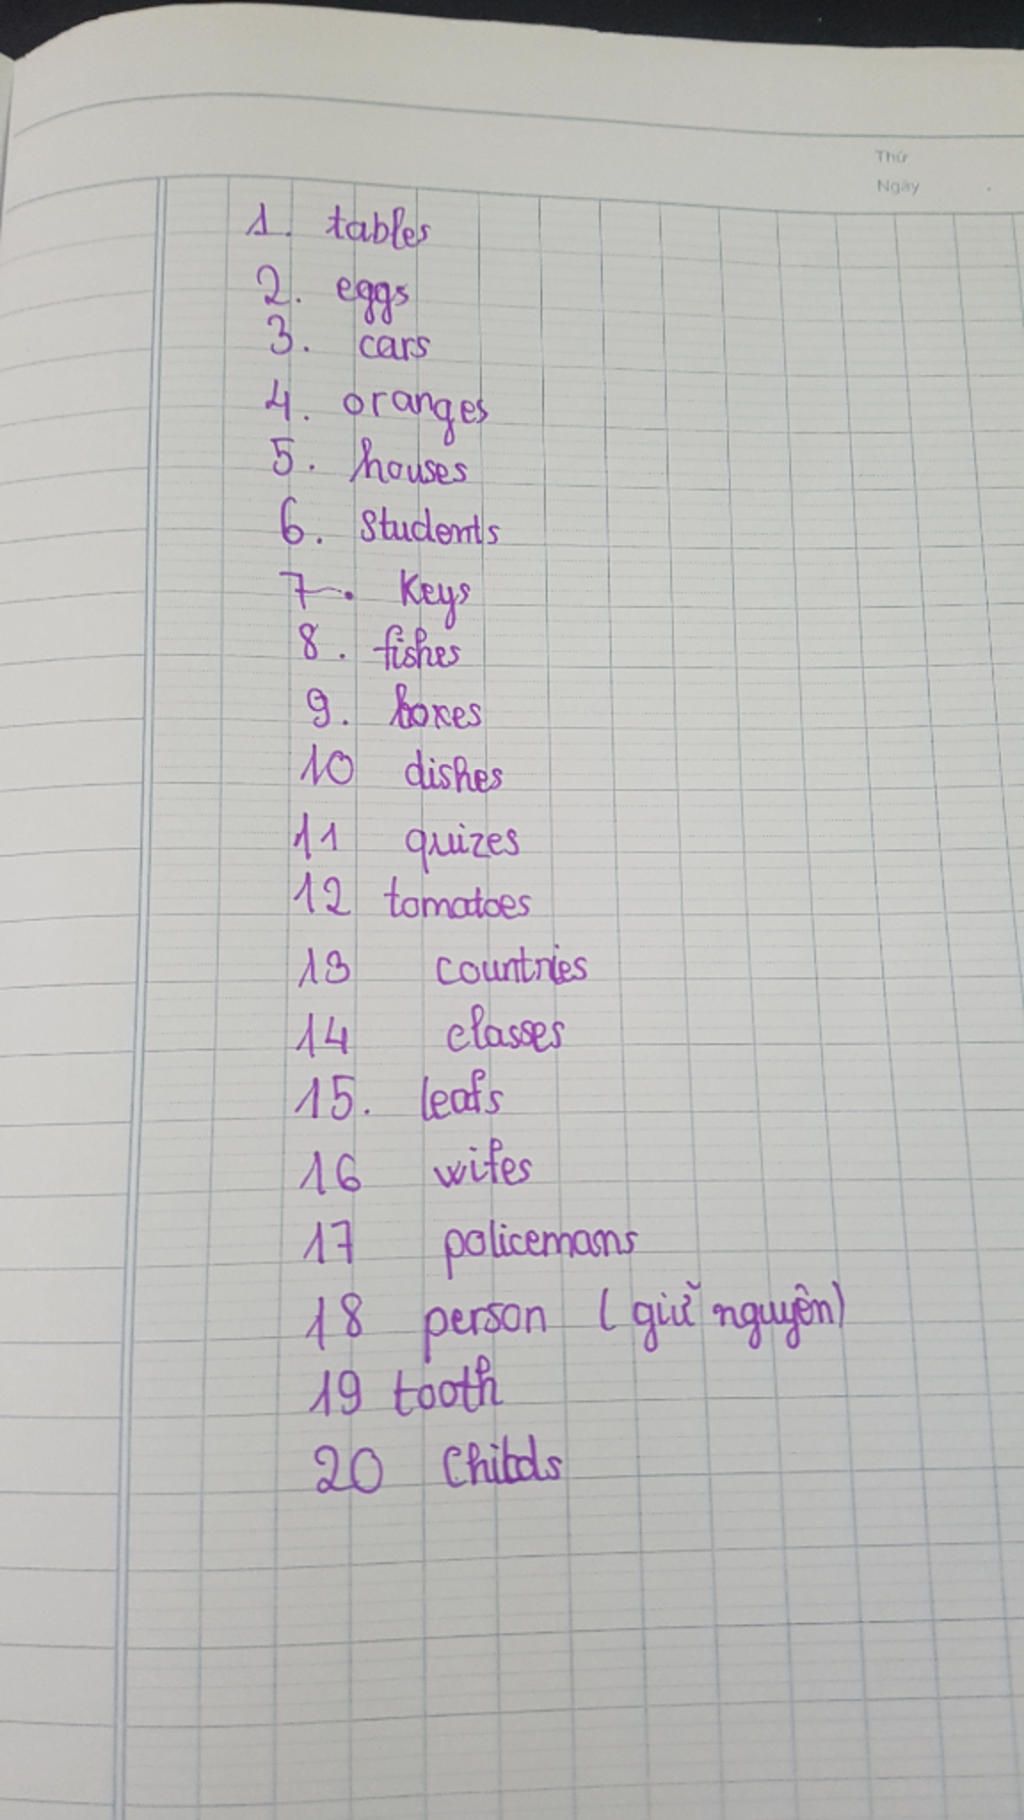 Thứ
Ngày
1. tables
2. eggs
3. cars
4. oranges
5. houses
6. students
7. keys
8. fishes
9. boxes
10 dishes
11 quizes
12 tomatoes
13 countries
14 classes
15. leafs
16 wifes
17 policemans
18 person (giữ nguyên)
19 tooth
20 childs